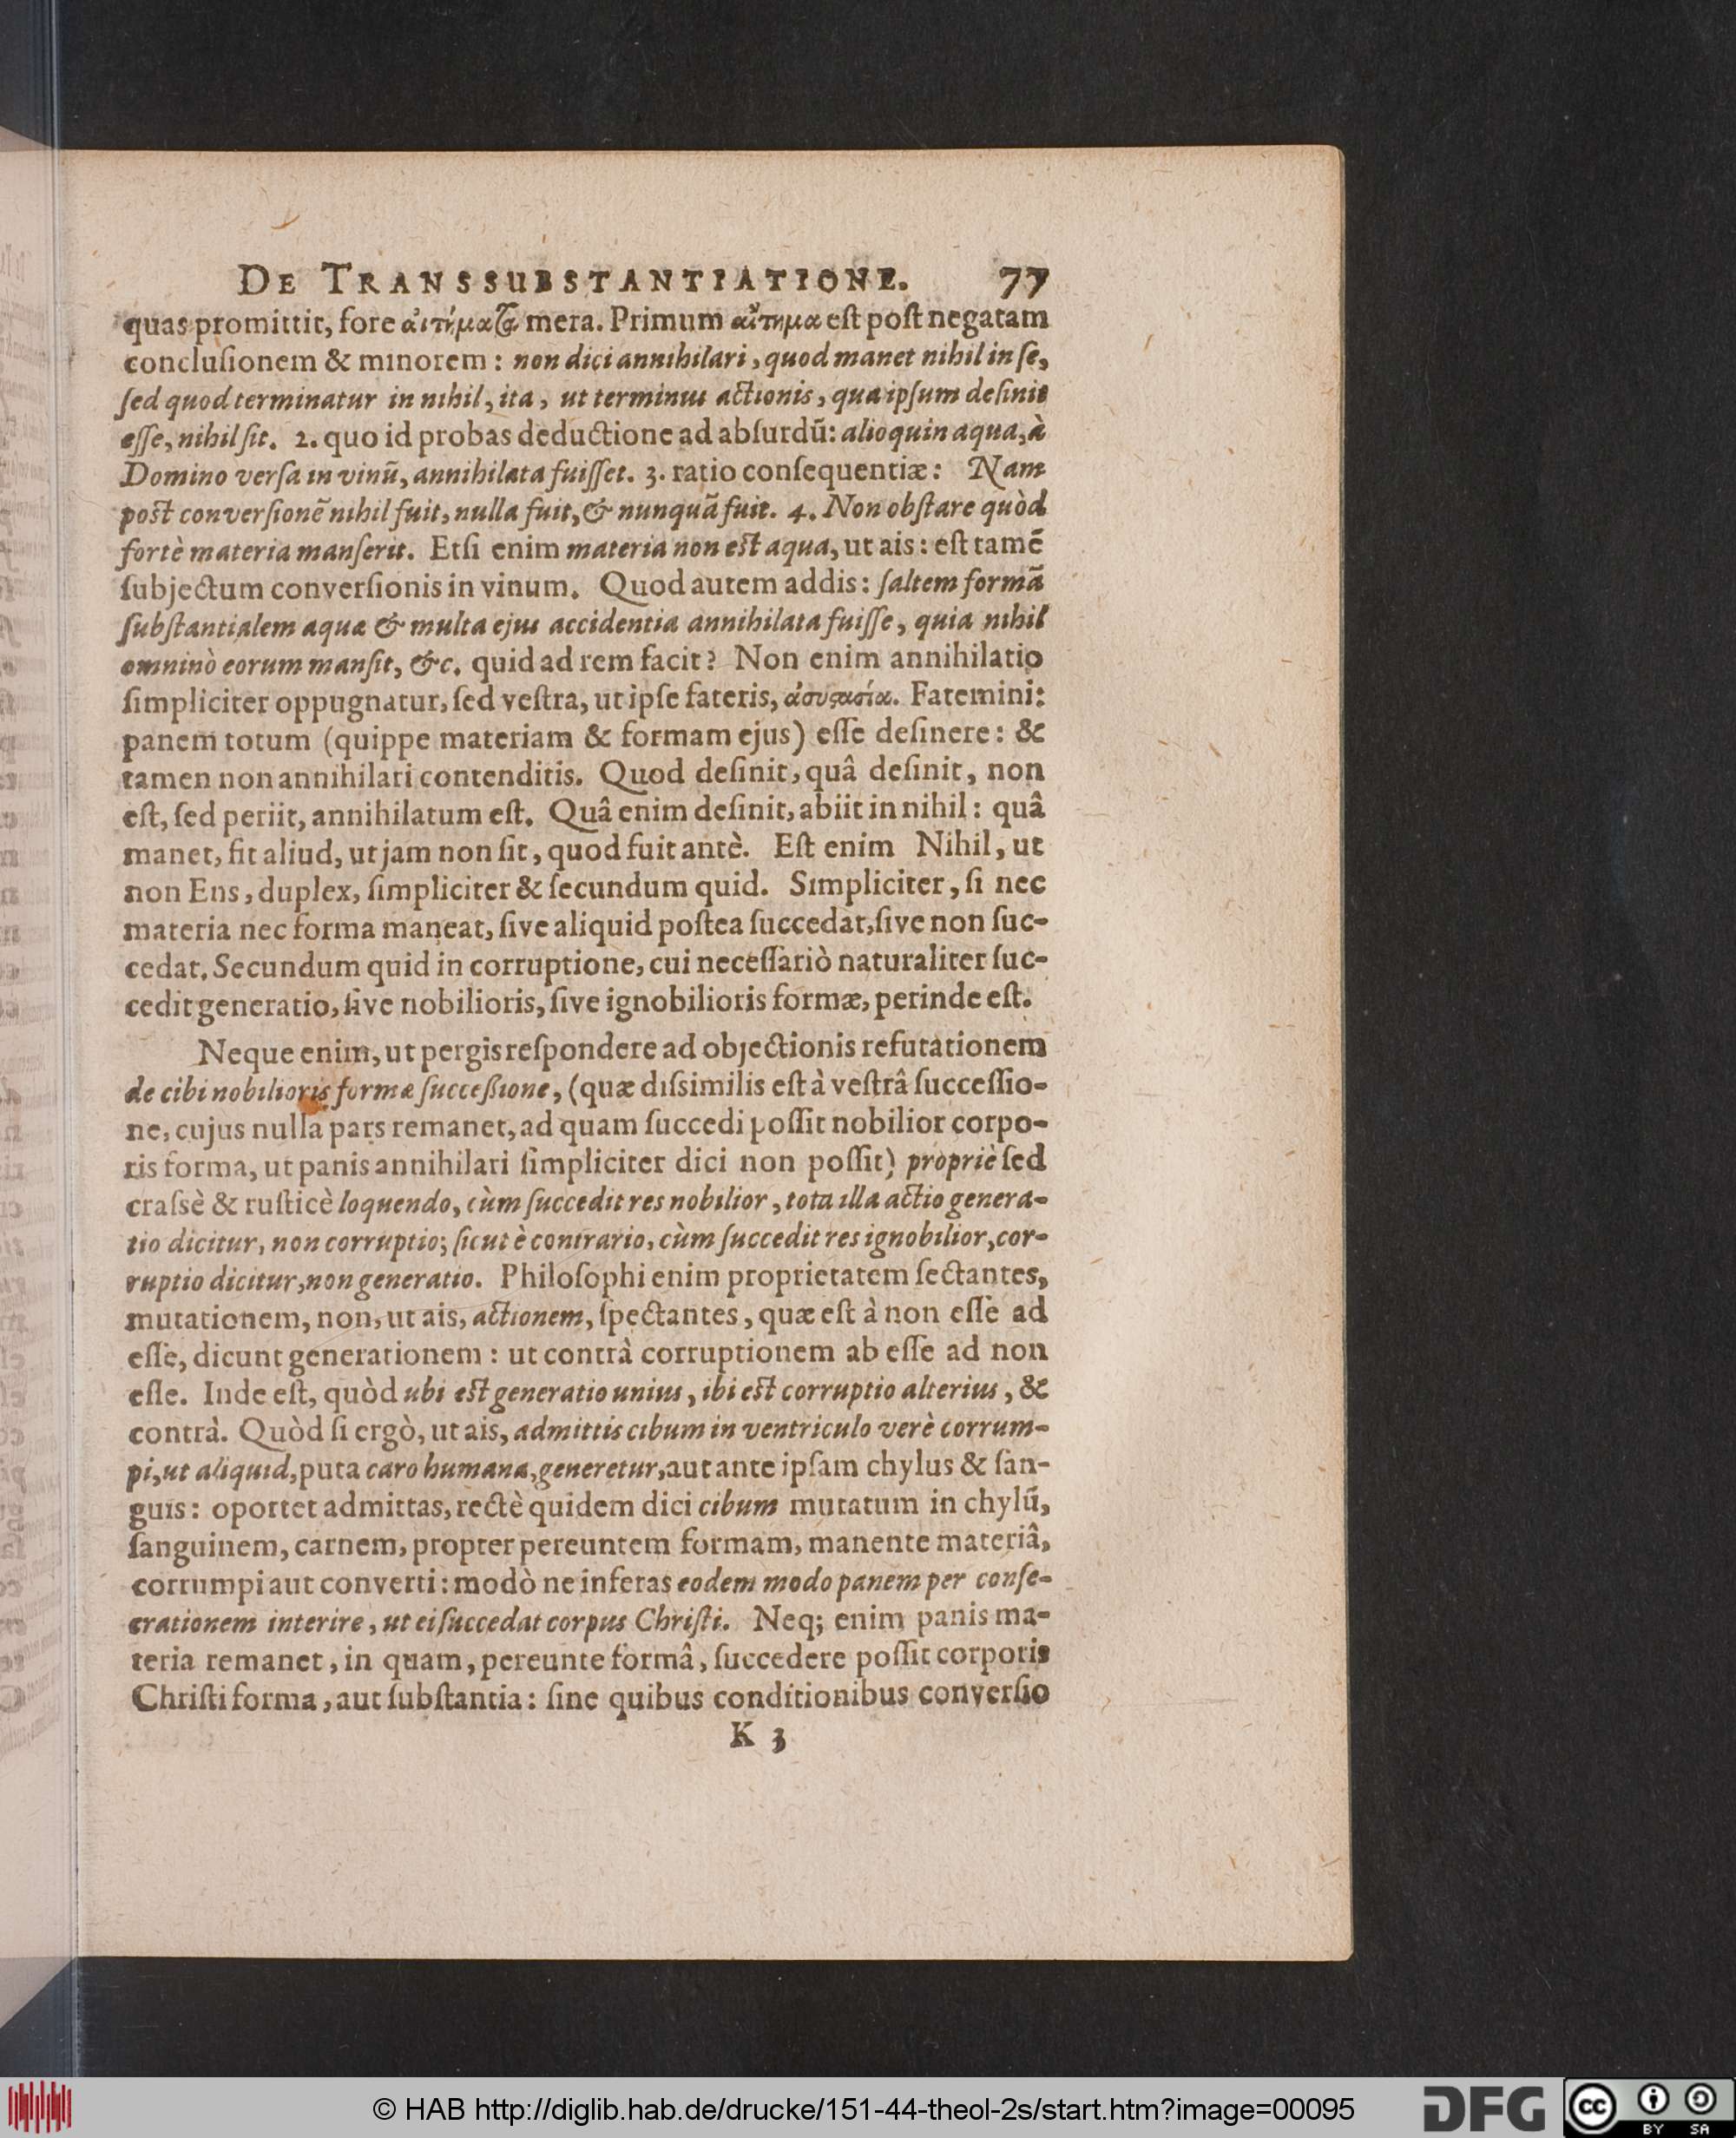 DE TRANSSUBSTANTIATIONE. 77
quas promittit, fore αἰτήματα mera. Primum αἴτημα eſt poſt negatam
concluſionem & minorem: non dici annihilari, quod manet nihil in ſe,
ſed quod terminatur in nihil, ita, ut terminus actionis, qua ipſum deſinit
eſſe, nihil ſit. 2. quo id probas deductione ad abſurdũ: alioquin aqua, à
Domino verſa in vinũ, annihilata fuiſſet. 3. ratio conſequentiæ: Nam
poſt converſionẽ nihil fuit, nulla fuit, & nunquã fuit. 4. Non obſtare quòd
fortè materia manſerit. Etſi enim materia non eſt aqua, ut ais: eſt tamẽ
ſubjectum converſionis in vinum. Quod autem addis: ſaltem formã
ſubſtantialem aquæ & multa ejus accidentia annihilata fuiſſe, quia nihil
omninò eorum manſit, &c. quid ad rem facit? Non enim annihilatio
ſimpliciter oppugnatur, ſed veſtra, ut ipſe fateris, ἀσυϛασία. Fatemini:
panem totum (quippe materiam & formam ejus) eſſe deſinere: &
tamen non annihilari contenditis. Quod deſinit, quâ deſinit, non
eſt, ſed periit, annihilatum eſt. Quâ enim deſinit, abiit in nihil: quâ
manet, fit aliud, ut jam non ſit, quod fuit antè. Eſt enim Nihil, ut
non Ens, duplex, ſimpliciter & ſecundum quid. Simpliciter, ſi nec
materia nec forma maneat, ſive aliquid poſtea ſuccedat, ſive non ſuc-
cedat. Secundum quid in corruptione, cui neceſſariò naturaliter ſuc-
cedit generatio, ſive nobilioris, ſive ignobilioris formæ, perinde eſt.
Neque enim, ut pergis reſpondere ad objectionis refutationem
de cibi nobilioris formæ ſucceßione, (quæ diſsimilis eſt à veſtrâ ſucceſſio-
ne, cujus nulla pars remanet, ad quam ſuccedi poſſit nobilior corpo-
ris forma, ut panis annihilari ſimpliciter dici non poſſit) propriè ſed
craſsè & ruſticè loquendo, cùm ſuccedit res nobilior, tota illa actio genera-
tio dicitur, non corruptio; ſicut è contrario, cùm ſuccedit res ignobilior, cor-
ruptio dicitur, non generatio. Philoſophi enim proprietatem ſectantes,
mutationem, non, ut ais, actionem, ſpectantes, quæ eſt à non eſſe ad
eſſe, dicunt generationem: ut contrà corruptionem ab eſſe ad non
eſſe. Inde eſt, quòd ubi eſt generatio unius, ibi eſt corruptio alterius, &
contrà. Quòd ſi ergò, ut ais, admittis cibum in ventriculo verè corrum-
pi, ut aliquid, puta caro humana, generetur, aut ante ipſam chylus & ſan-
guis: oportet admittas, rectè quidem dici cibum mutatum in chylũ,
ſanguinem, carnem, propter pereuntem formam, manente materiâ,
corrumpi aut converti: modò ne inferas eodem modo panem per conſe-
crationem interire, ut ei ſuccedat corpus Chriſti. Neq; enim panis ma-
teria remanet, in quam, pereunte formâ, ſuccedere poſſit corporis
Chriſti forma, aut ſubſtantia: ſine quibus conditionibus converſio
K 3
© HAB http://diglib.hab.de/drucke/151-44-theol-2s/start.htm?image=00095
DFG
cc BY SA